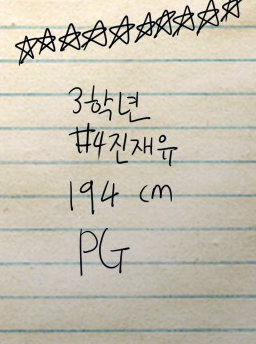 3학년
#4진재유
194 cm
PG